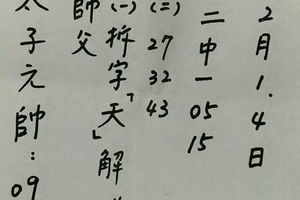 2月1.4日
二中一 05 15
(二) 27 32 43
(一)拆字「天」解
師父
太子元帥:09